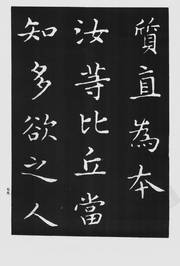 質直為本
汝等比丘當
知多欲之人